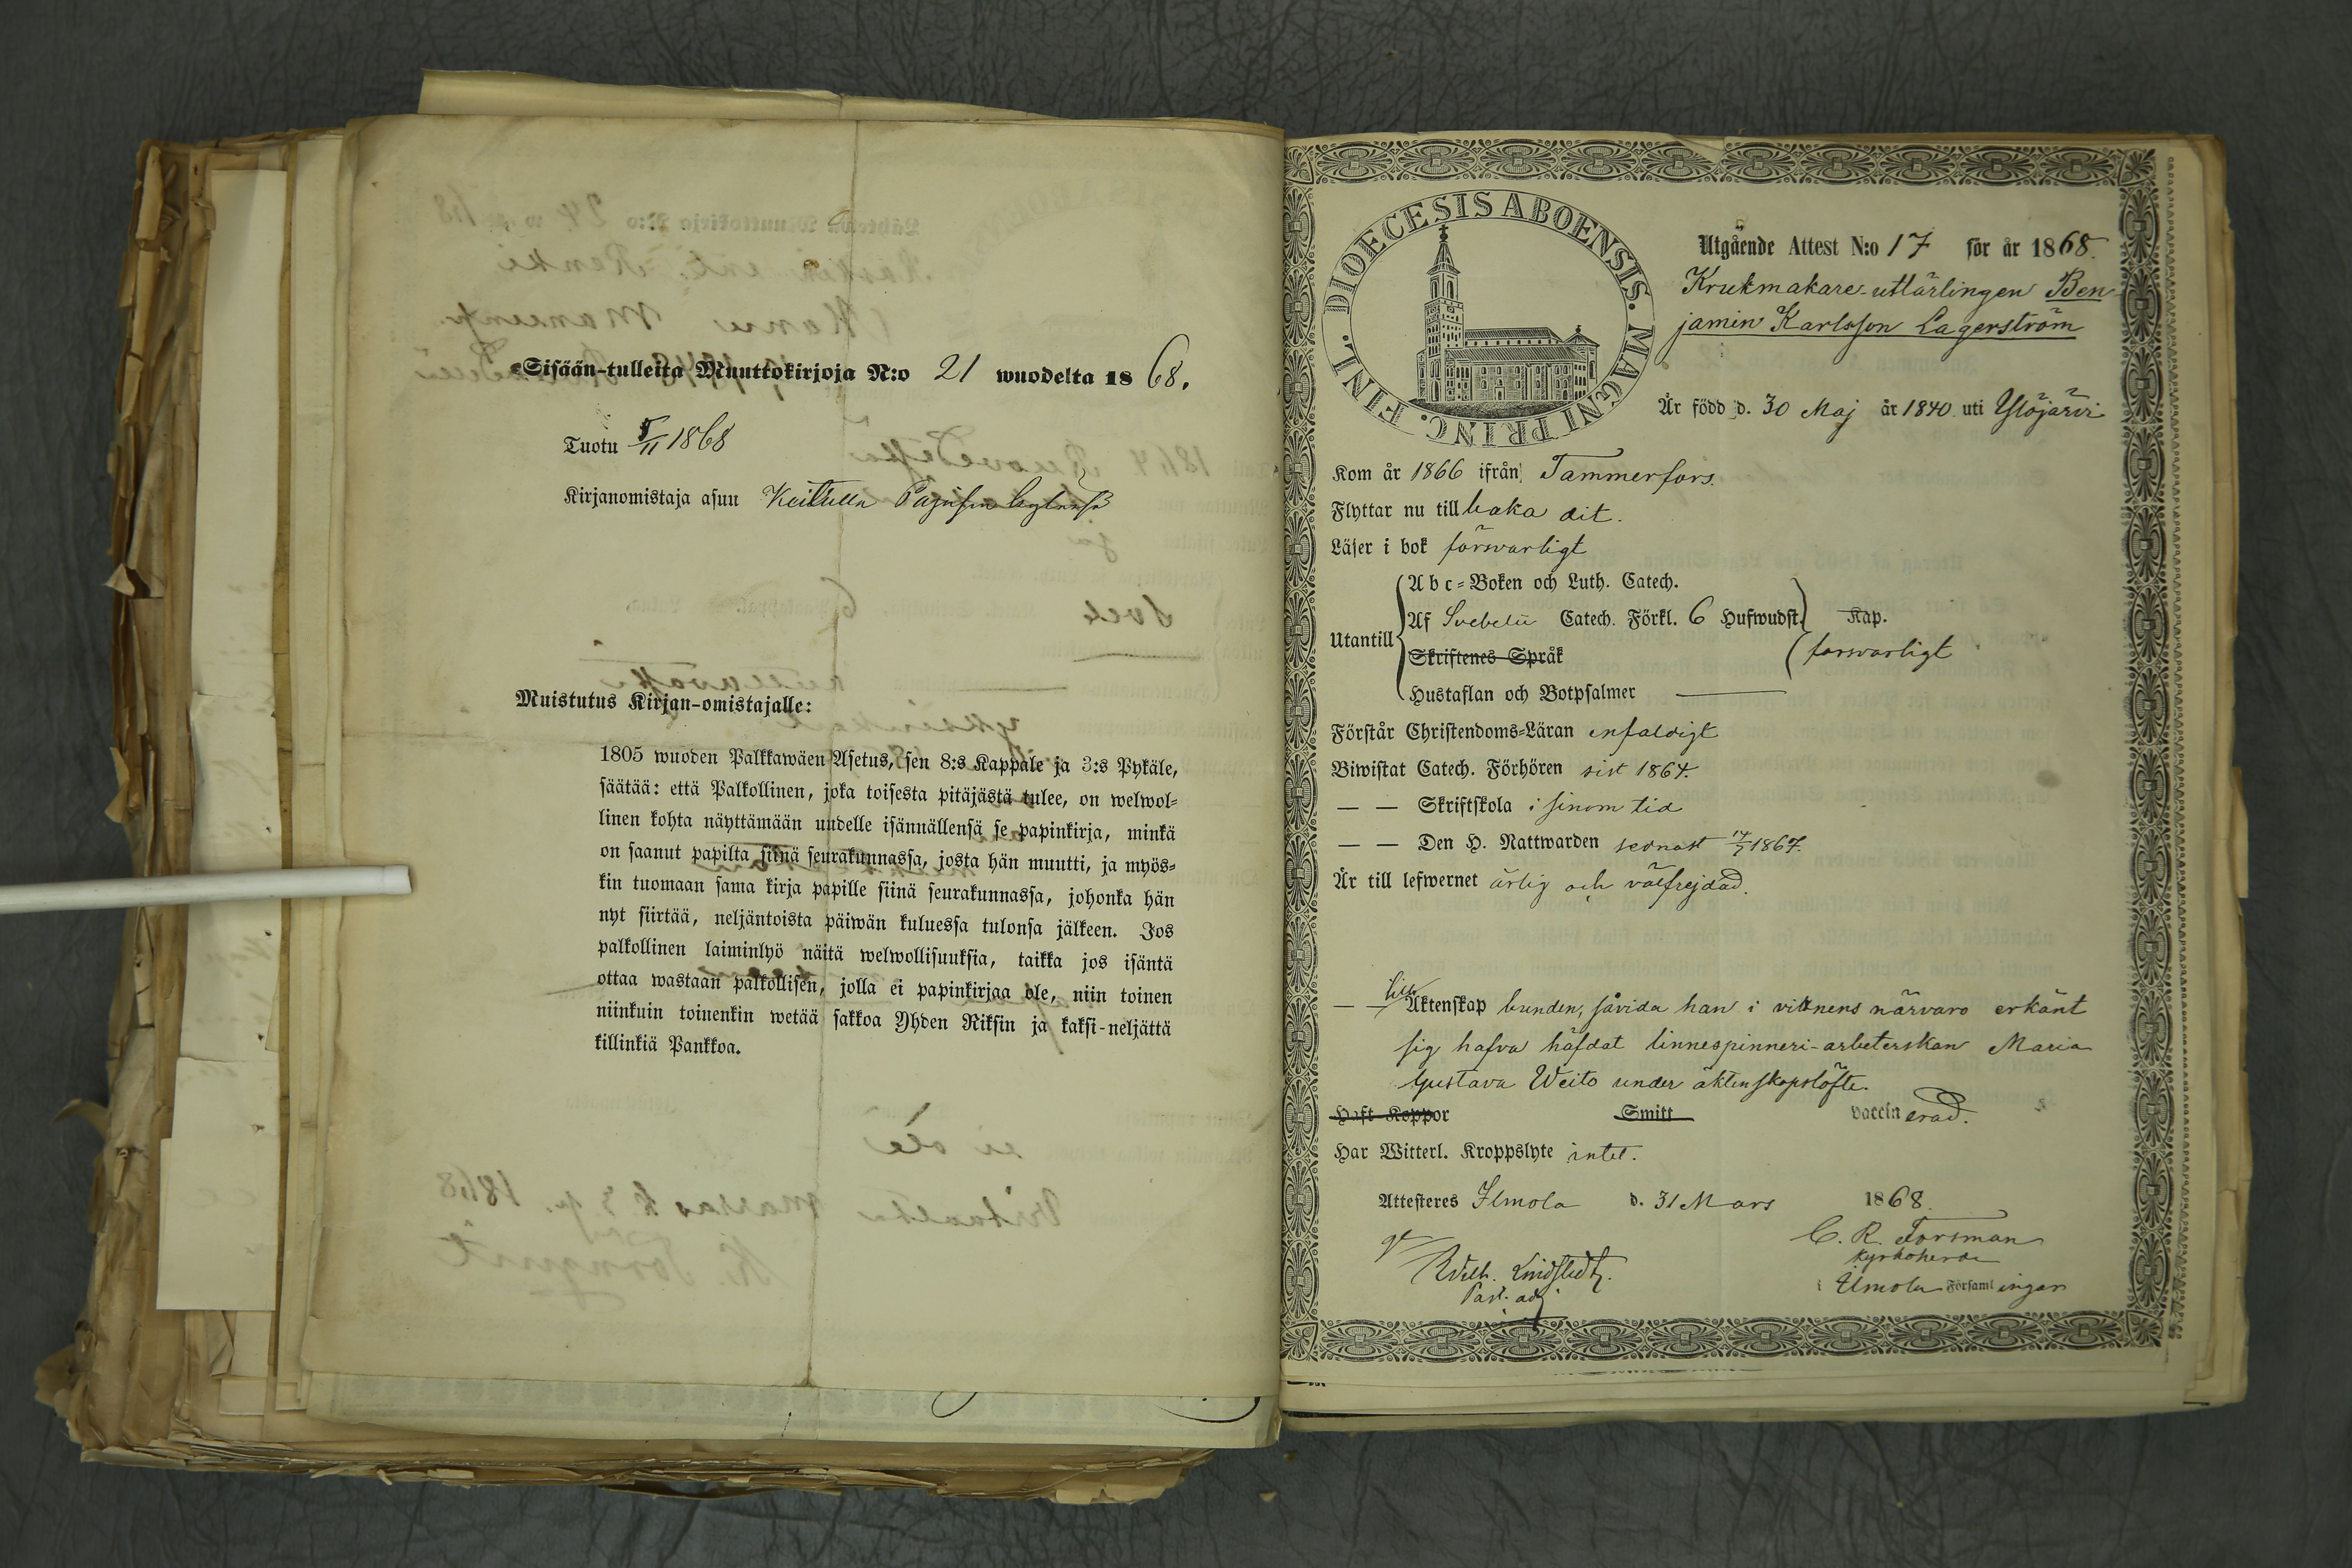 Sisään-tulleita Muuttokirjoja N:o 21 wuodelta 1868.
Tuotu 5/11 1868
Kirjanomistaja asuu
Muistutus Kirjan-omistajalle:
1805 wuoden Palkkawäen Asetus, sen 8:s Kappale ja 3:s Pykäle,
säätää: että Palkollinen, joka toisesta pitäjästä tulee, on welwol-
linen kohta näyttämään uudelle isännällensä se papinkirja, minkä
on saanut papilta siinä seurakunnassa, josta hän muutti, ja myös-
kin tuomaan sama kirja papille siinä seurakunnassa, johonka hän
nyt siirtää, neljäntoista päiwän kuluessa tulonsa jälkeen. Jos
palkollinen laiminlyö näitä welwollisuuksia, taikka jos isäntä
ottaa wastaan palkollisen, jolla ei papinkirjaa ole, niin toinen
niinkuin toinenkin wetää sakkoa Yhden Riksin ja kaksi-neljättä
killinkiä Pankkoa.
DIOECESIS ABOENSIS. MAGNI PRINC. FINL.
Utgående Attest N:o 17 för år 1868.
Krukmakare-utlärlingen Ben-
jamin Karlsson Lagerström
Är född d. 30 Maj år 1840 uti Ylöjärvi
Kom år 1866 ifrån Tammerfors.
Flyttar nu tillbaka dit.
Läser i bok försvarligt
Utantill
Abc-Boken och Luth. Catech.
Af Svebelii Catech. Förkl. 6 Hufwudst. Kap.
Skriftenes Språk försvarligt
Hustaflan och Botpsalmer
Förstår Christendoms-Läran enfaldigt
Biwistat Catech. Förhören sist 1864.
— — Skriftskola i sinom tid
— — Den H. Nattwarden sednast 14/7 1867.
Är till lefwernet ärlig och välfrejdad.
— — till Äktenskap bunden, såvida han i vittnens närvaro erkänt
sig hafva häfdat linnespinneri-arbeterskan Maria
Gustava Weito under äktenskapslöfte.
Haft Koppor Smitt vaccinerad.
Har Witterl. Kroppslyte intet.
Attesteres Ilmola d. 31 Mars 1868.
C. R. Forsman
Kyrkoherde
i Ilmola Församlingar
Wilh. Lindstedt.
Past. adj.